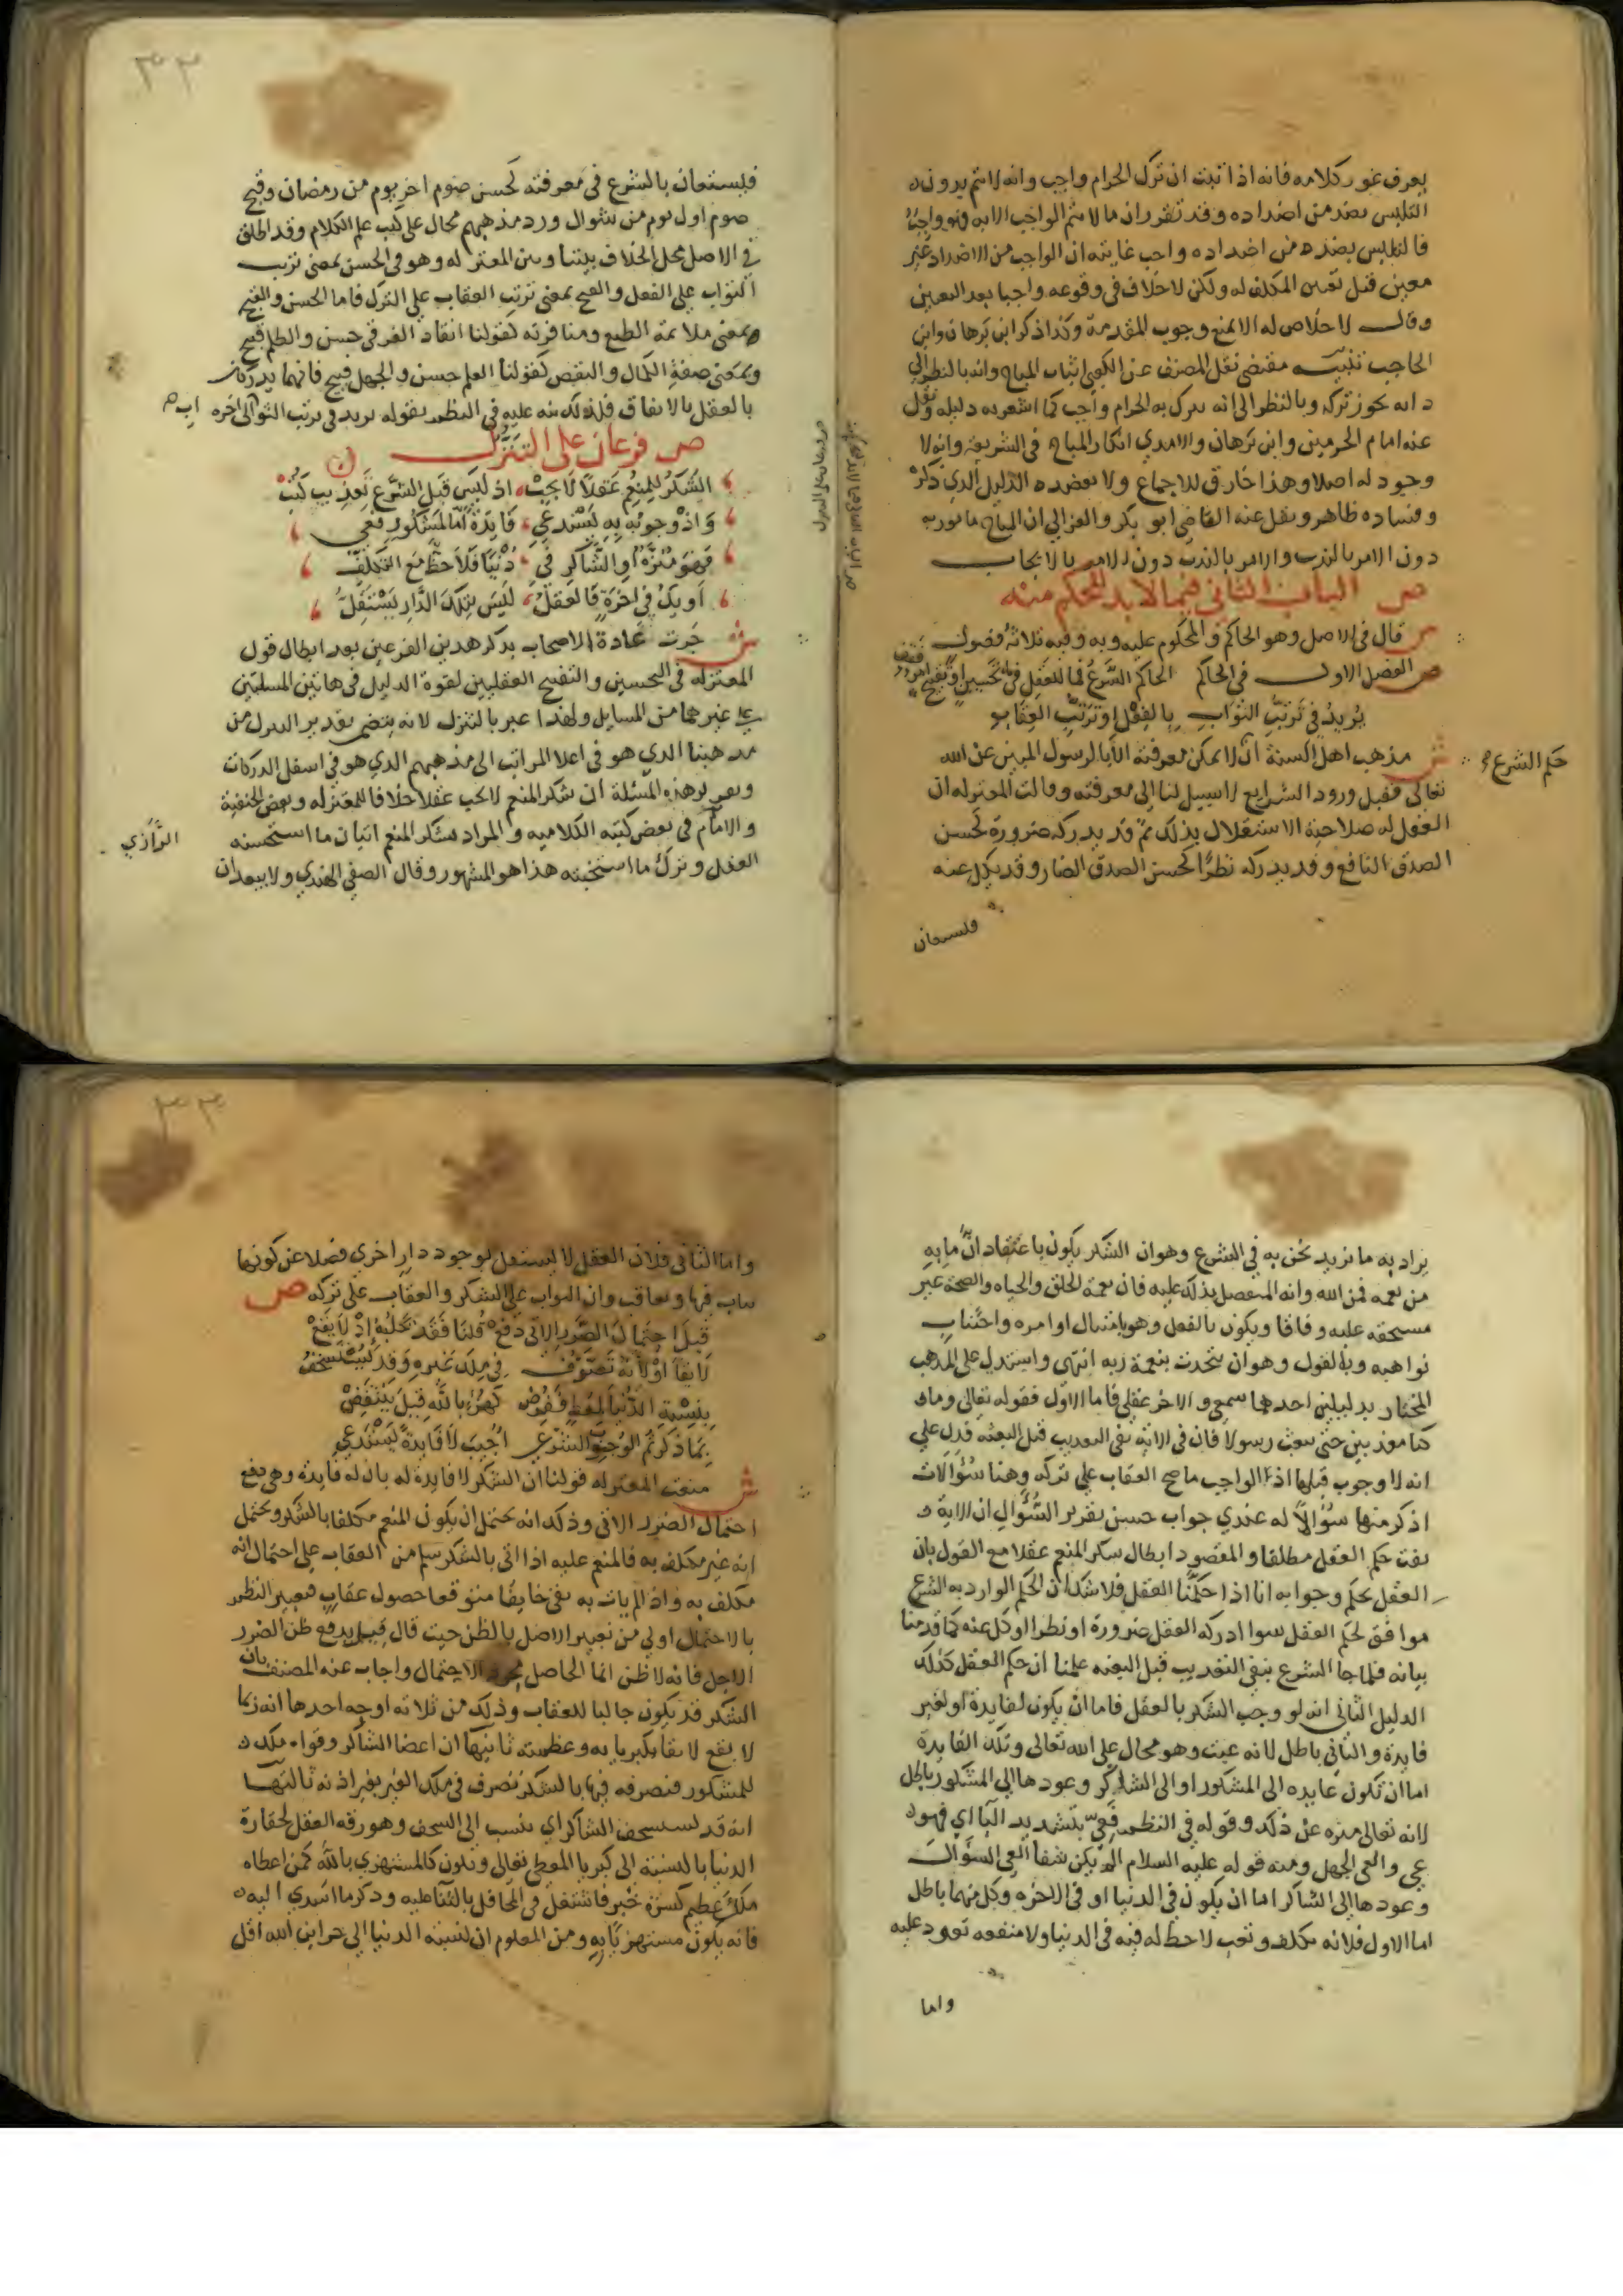 يعرف غور كلامه فانه اذا ثبت ان ترك الحرام واجب وانه لا يتم بدون
التلبس بضد من اضداده وقد تقرر ان ما لا يتم الواجب الا به فهو واجب
فالتلبس بضد من اضداده واجب غايته ان الواجب من الاضداد غير
معين قبل تعين المكلف له ولكن لا خلاف في وقوعه واجبا بعد التعين
وقال لا خلاص له الا بمنع وجوب المقدمة وكذا ذكر ابن برهان وابن
الحاجب تنبيه مقتضى نقل المصنف عن الكعبي اثبات المباح وانه بالنظر الى
ذاته يجوز تركه وبالنظر الى انه يترك به الحرام واجب كما اشعر به دليله ونقل
عنه امام الحرمين وابن برهان والامدي انكار المباح في الشريعة وانه لا
وجود له اصلا وهذا خارق للاجماع ولا يعضده الدليل الذي ذكر
وفساده ظاهر ونقل عنه القاضي ابو بكر والغزالي ان المباح مامور به
دون الامر بالندب والامر بالندب دون الامر بالايجاب
ص الباب الثاني فيما لا بد للحكم منه
ص قال في الاصل وهو الحاكم والمحكوم عليه وبه وفيه ثلاثة فصول
ص الفصل الاول في الحاكم الحاكم الشرع فما للعقل في تحسين او تقبيح
يريد في ترتب الثواب بالفعل او ترتب العقاب
ش مذهب اهل السنة ان لا يمكن معرفته الا بالرسول المبين عن الله
حكم الشرع
تعالى فقبل ورود الشرايع لا سبيل لنا الى معرفته وقالت المعتزله ان
العقل له صلاحية الاستقلال بذلك ثم قد يدركه ضرورة كحسن
الصدق النافع وقد يدركه نظرا كحسن الصدق الضار وقد يكل عنه
فليستعان
٣٢
فليستعان بالشرع في معرفته كحسن صوم اخر يوم من رمضان وقبح
صوم اول يوم من شوال ورد مذهبهم محال على كتب علم الكلام وقد اطلق
في الاصل محل الخلاف بيننا وبين المعتزله وهو في الحسن بمعنى ترتب
الثواب على الفعل والقبح بمعنى ترتب العقاب على الترك فاما الحسن والقبح
بمعنى ملائمة الطبع ومنافرته كقولنا انقاذ الغرقى حسن والظلم قبيح
وبمعنى صفة الكمال والنقص كقولنا العلم حسن والجهل قبيح فانهما يدركان
بالعقل بالاتفاق فلذلك نبه عليه في النظم بقوله يريد في ترتب الثواب الى اخره
ص فرعان على التنزل
الشكر للمنعم عقلا لا يجب اذ ليس قبل الشرع تعذيب كتب
واذ وجوبه به يستدعي فايدة اما لمشكور فعي
فهو منزه او الشاكر في دنيا فلا حظ مع التكلف
او يك في اخرة فالعقل ليس بتلك الدار يستقل
ش جرت عادة الاصحاب بذكر هدين الفرعين بعد ابطال قول
المعتزله في التحسين والتقبيح العقليين لقوة الدليل في هاتين المسلتين
على غيرهما من المسايل ولهذا عبر بالتنزل لانه يتضمن تقدير النزول من
مذهبنا الذي هو في اعلا المراتب الى مذهبهم الذي هو في اسفل الدركات
وتقرير هذه المسئلة ان شكر المنعم لا يجب عقلا خلافا للمعتزله وبعض الحنفية
والامام في بعض كتبه الكلاميه والمراد بشكر المنعم اتيان ما استحسنه
الرازي
العقل وترك ما استخبثه هذا هو المشهور وقال الصفي الهندي ولا يبعد ان
يراد به ما نريد نحن به في الشرع وهو ان الشكر يكون باعتقاد ان ما به
من نعمه فمن الله وانه المتفضل بذلك عليه فان نعمة الخلق والحياه والصحة غير
مستحقه عليه وفاقا ويكون بالفعل وهو بامتثال اوامره واجتناب
نواهيه وبالقول وهو ان يتحدث بنعمة ربه انتهى واستدل على المذهب
المختار بدليلين احدهما سمعي والاخر عقلي فاما الاول فقوله تعالى وما
كنا معذبين حتى نبعث رسولا فان في الاية نفي التعذيب قبل البعثه فدل على
انه لا وجوب قبلها اذ الواجب ما صح العقاب على تركه وهنا سؤالات
اذكر منها سؤالا له عندي جواب حسن تقرير السؤال ان الاية
نفت حكم العقل مطلقا والمقصود ابطال شكر المنعم عقلا مع القول بان
العقل يحكم وجوابه انا اذا حكمنا العقل فلا شك ان الحكم الوارد به الشرع
موافق لحكم العقل سوا ادركه العقل ضرورة او نظرا او كل عنه كما قدمنا
بيانه فلما جا الشرع بنفي التعذيب قبل البعثه علمنا ان حكم العقل كذلك
الدليل الثاني انه لو وجب الشكر بالعقل فاما ان يكون لفايدة او لغير
فايدة والثاني باطل لانه عبث وهو محال على الله تعالى وتلك الفايدة
اما ان تكون عايده الى المشكور او الى الشاكر وعودها الى المشكور باطل
لانه تعالى منزه عن ذلك وقوله في النظم فعي بتشديد اليا اي فهو
عي والعي الجهل ومنه قوله عليه السلام الم يكن شفا العي السؤال
وعودها الى الشاكر اما ان يكون في الدنيا او في الاخره وكل منهما باطل
اما الاول فلانه تكلف وتعب لا حظ له فيه في الدنيا ولا منفعه تعود عليه
واما
٣٣
واما الثاني فلان العقل لا يستقل بوجود دار اخري فضلا عن كونها
يثاب فيها ويعاقب وان الثواب على الشكر والعقاب على تركه ص
قيل احتمال الضرر الاتي دفع قلنا فقد تجلبه اذ لا يقع
لايقا او لانه تصرف في ملك غيره وقد يستسخف
بنسبة الدنيا لمعط فقرض كهزء بالله قيل ينتقض
بما ذكرتم الوجوب الشرعي اجيب لا فايدة يستدعي
ش منعت المعتزله قولنا ان الشكر لا فايدة له بان له فايدة وهي دفع
احتمال الضرر الاتي وذلك انه يحتمل ان يكون المنعم مكلفا بالشكر ويحتمل
انه غير مكلف به فالمنعم عليه اذا اتى بالشكر سلم من العقاب على احتمال انه
مكلف به واذ الم يات به بقي خايفا متوقعا حصول عقاب فتعبير النظم
بالاحتمال اولي من تعبير الاصل بالظن حيث قال قيل يدفع ظن الضرر
الاجل فانه لا ظن انما الحاصل مجرد الاحتمال واجاب عنه المصنف بان
الشكر قد يكون جالبا للعقاب وذلك من ثلاثه اوجه احدها انه ربما
لا يقع لايقا بكبريايه وعظمته ثانيها ان اعضا الشاكر وقواه ملك
للمشكور فتصرفه فيها بالشكر تصرف في ملك الغير بغير اذنه ثالثها
انه قد يستسخف الشاكر اي ينسب الى السخف وهو رقة العقل لحقارة
الدنيا بالنسبة الى كبريا المعطي تعالى وتكون كالمستهزي بالله كمن اعطاه
ملك عظيم كسرة خبز فاشتغل في المحافل بالثنا عليه وذكر ما اسدي اليه
فانه يكون مستهزيا به ومن المعلوم ان نسبة الدنيا الى خزاين الله اقل